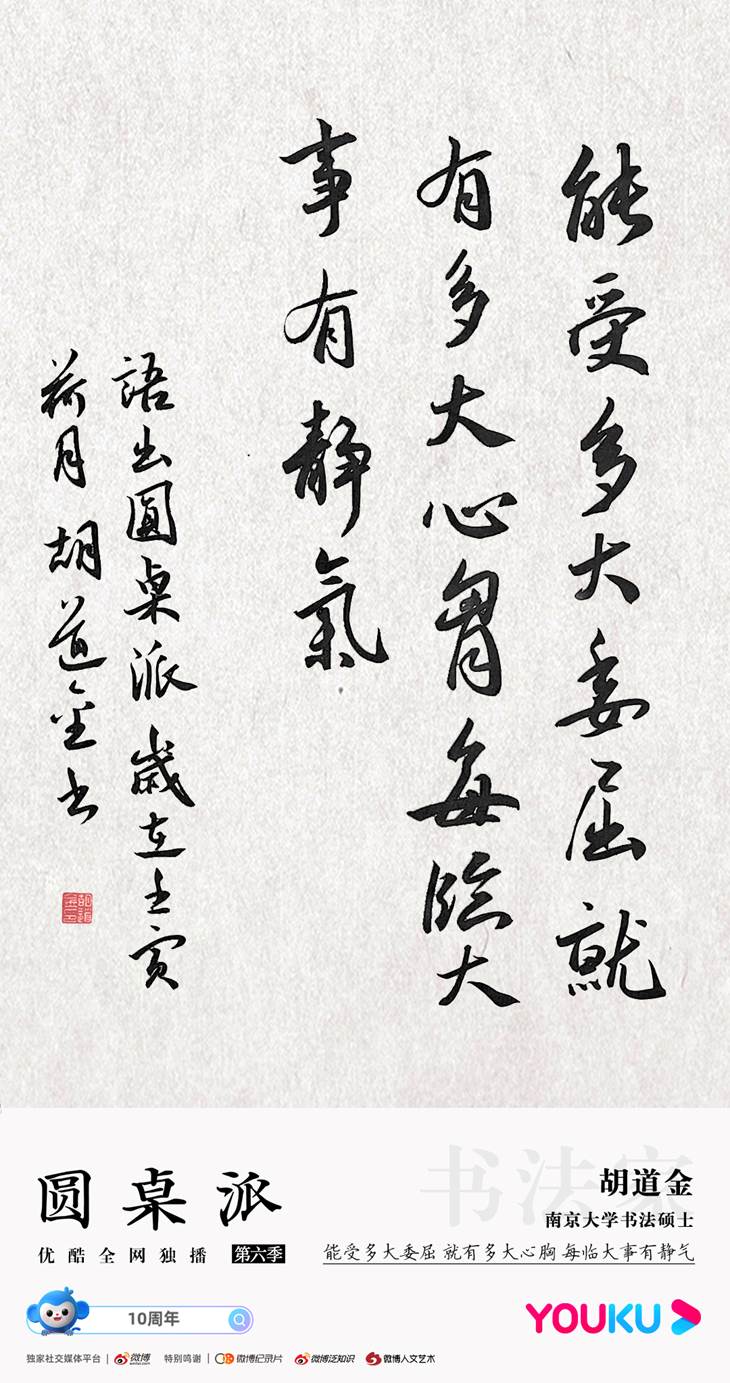 能受多大委屈就
有多大心胷每臨大
事有靜氣
語出圓桌派歲在壬寅
荷月胡道金书
圆桌派
优酷全网独播 第六季
书法家
胡道金
南京大学书法硕士
能受多大委屈 就有多大心胸 每临大事有静气
10周年
YOUKU
独家社交媒体平台 | 微博 weibo.com 特别鸣谢 | 微博纪录片 微博泛知识 微博人文艺术